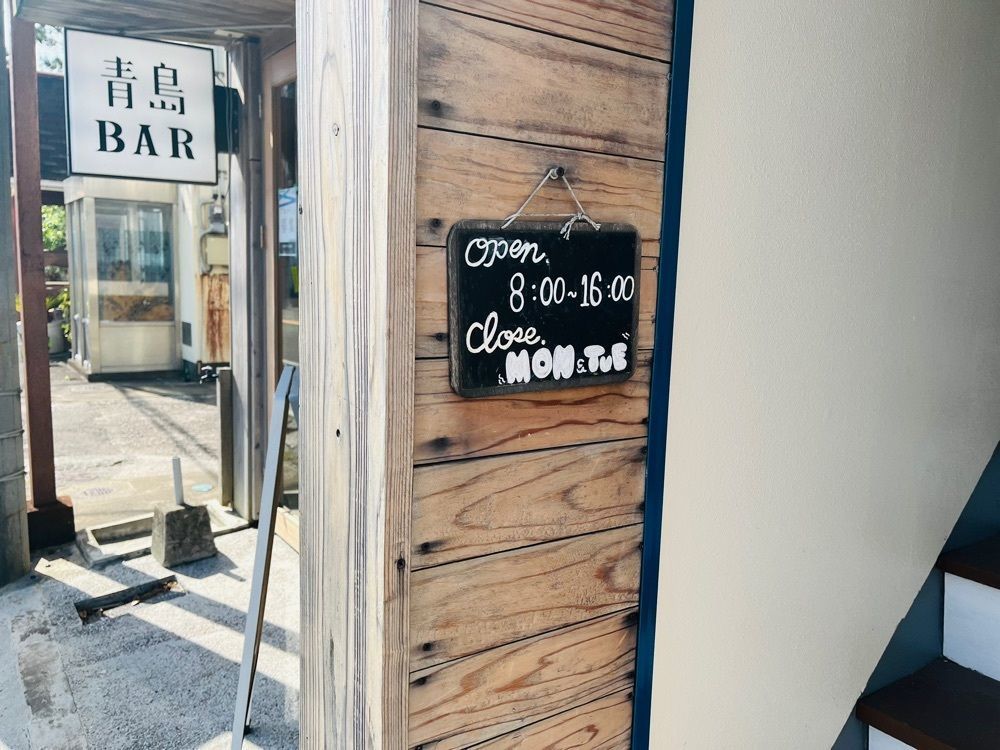 青島
BAR
Open.
8:00~16:00
Close.
"MON & TUE"